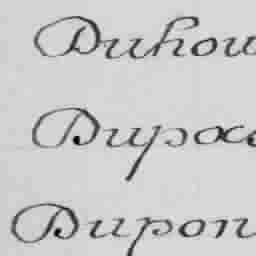 Duhou
Dupac
Dupon